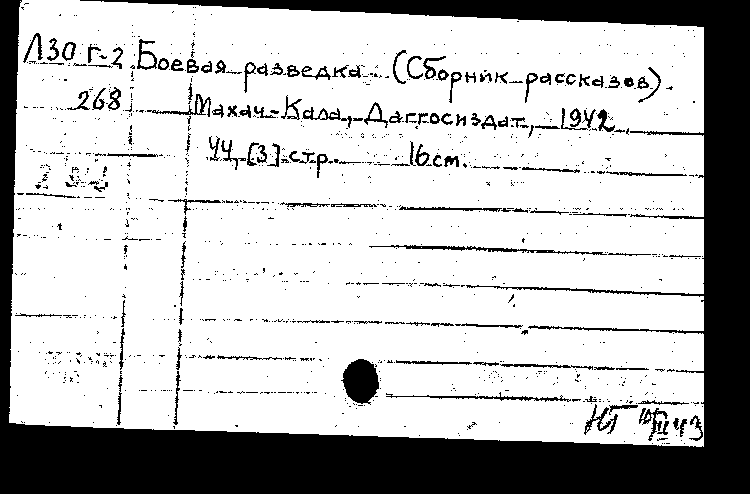 Л30 г-2 Боевая разведка. (Сборник рассказов).
268 Махач-Кала, Даггосиздат, 1942.
44, [3] стр. 16 см.
НГ III 43